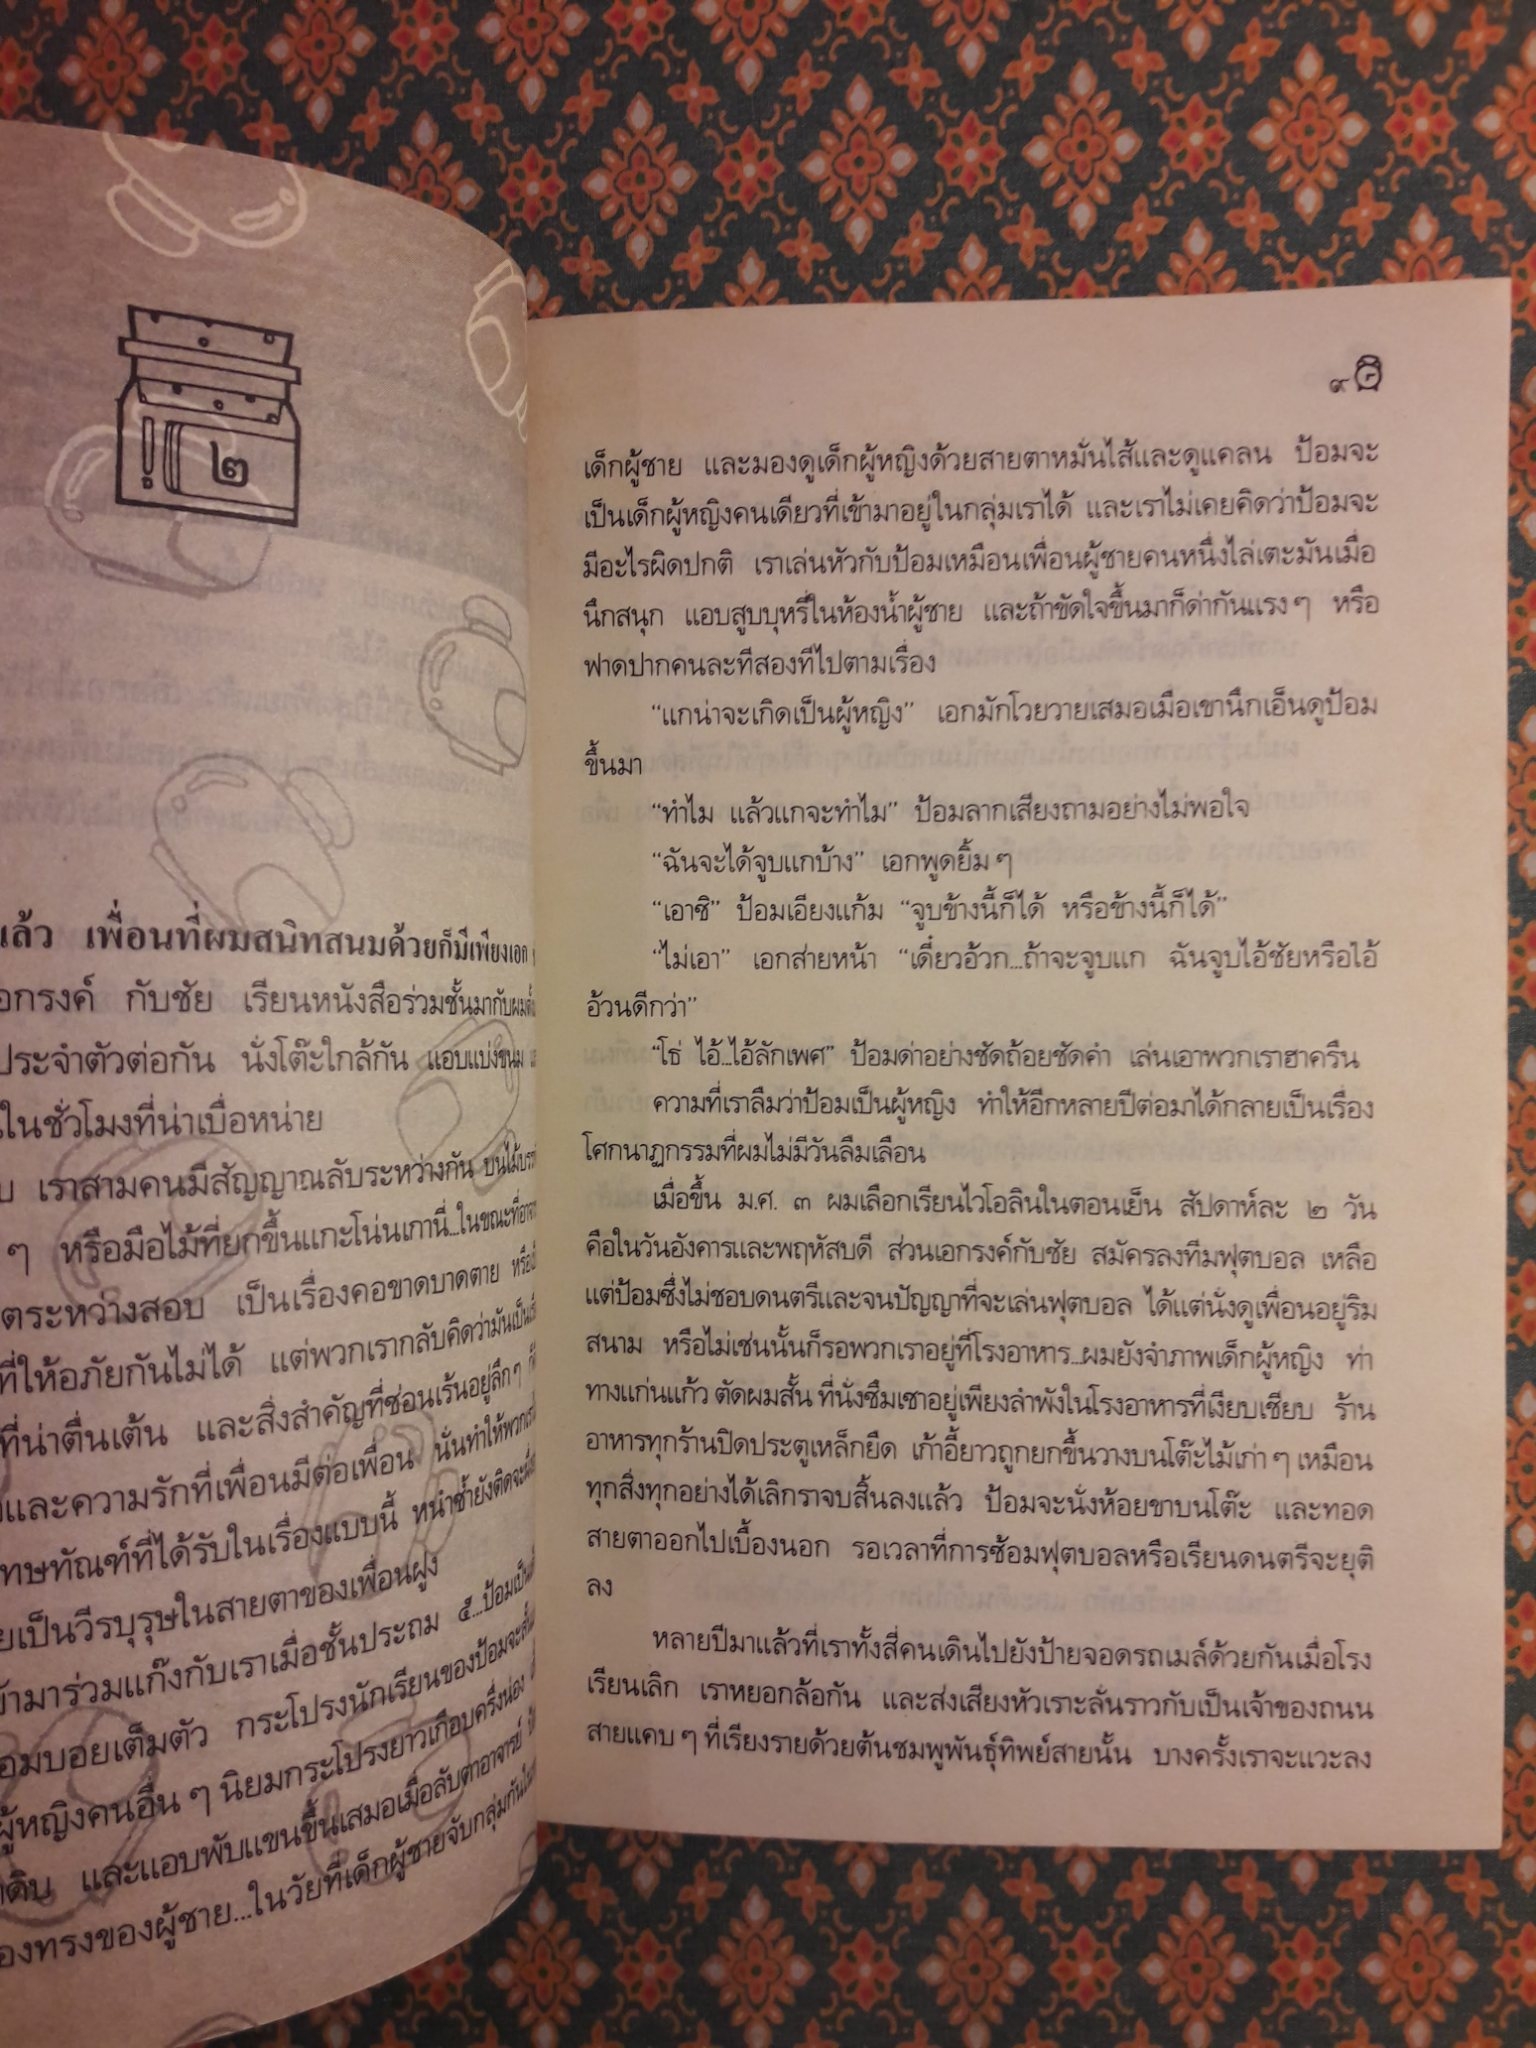 ๒
แล้ว เพื่อนที่ผมสนิทสนมด้วยก็มีเพียงเอก
กับชัย เรียนหนังสือร่วมชั้นมากับผมตั้ง
ประจำตัวต่อกัน นั่งโต๊ะใกล้กัน แอบแบ่งขนม
ในชั่วโมงที่น่าเบื่อหน่าย
เราสามคนมีสัญญาณลับระหว่างกัน
ๆ หรือมือไม้ที่ยกขึ้นแกะโน่นเกานี่...ในขณะที่
ระหว่างสอบ เป็นเรื่องคอขาดบาดตาย
ที่ให้อภัยกันไม่ได้ แต่พวกเรากลับคิดว่ามันเป็น
ที่น่าตื่นเต้น และสิ่งสำคัญที่ซ่อนเร้นอยู่ลึกๆ
และความรักที่เพื่อนมีต่อเพื่อน นั่นทำให้พวกเรา
ทัณฑ์ที่ได้รับในเรื่องแบบนี้ หนำซ้ำยังคิดจะ
เป็นวีรบุรุษในสายตาของเพื่อนฝูง
มาร่วมแก๊งกับเราเมื่อชั้นประถม ๕...ป้อมเป็น
ทอมบอยเต็มตัว กระโปรงนักเรียนของป้อมจะสั้น
ผู้หญิงคนอื่น ๆ นิยมกระโปรงยาวเกือบครึ่งน่อง
และแอบพับแขนขึ้นเสมอเมื่อลับตาอาจารย์
ทรงของผู้ชาย...ในวัยที่เด็กผู้ชายจับกลุ่มกัน
๙
เด็กผู้ชาย และมองดูเด็กผู้หญิงด้วยสายตาหมั่นไส้และดูแคลน ป้อมจะ
เป็นเด็กผู้หญิงคนเดียวที่เข้ามาอยู่ในกลุ่มเราได้ และเราไม่เคยคิดว่าป้อมจะ
มีอะไรผิดปกติ เราเล่นหัวกับป้อมเหมือนเพื่อนผู้ชายคนหนึ่งไล่เตะมันเมื่อ
นึกสนุก แอบสูบบุหรี่ในห้องน้ำผู้ชาย และถ้าขัดใจขึ้นมาก็ด่ากันแรงๆ หรือ
ฟาดปากคนละทีสองทีไปตามเรื่อง
“แกน่าจะเกิดเป็นผู้หญิง” เอกมักโวยวายเสมอเมื่อเขานึกเอ็นดูป้อม
ขึ้นมา
“ทำไม แล้วแกจะทำไม” ป้อมลากเสียงถามอย่างไม่พอใจ
“ฉันจะได้จูบแกบ้าง” เอกพูดยิ้มๆ
“เอาซิ” ป้อมเอียงแก้ม “จูบข้างนี้ก็ได้ หรือข้างนี้ก็ได้”
“ไม่เอา” เอกส่ายหน้า “เดี๋ยวอ้วก...ถ้าจะจูบแก ฉันจูบไอ้ชัยหรือไอ้
อ้วนดีกว่า”
“โธ่ ไอ้...ไอ้ลักเพศ” ป้อมด่าอย่างชัดถ้อยชัดคำ เล่นเอาพวกเราฮาครืน
ความที่เราลืมว่าป้อมเป็นผู้หญิง ทำให้อีกหลายปีต่อมาได้กลายเป็นเรื่อง
โศกนาฏกรรมที่ผมไม่มีวันลืมเลือน
เมื่อขึ้น ม.ศ. ๓ ผมเลือกเรียนไวโอลินในตอนเย็น สัปดาห์ละ ๒ วัน
คือในวันอังคารและพฤหัสบดี ส่วนเอกรงค์กับชัย สมัครลงทีมฟุตบอล เหลือ
แต่ป้อมซึ่งไม่ชอบดนตรีและจนปัญญาที่จะเล่นฟุตบอล ได้แต่นั่งดูเพื่อนอยู่ริม
สนาม หรือไม่เช่นนั้นก็รอพวกเราอยู่ที่โรงอาหาร...ผมยังจำภาพเด็กผู้หญิง ท่า
ทางแก่นแก้ว ตัดผมสั้น ที่นั่งซึมเซาอยู่เพียงลำพังในโรงอาหารที่เงียบเชียบ ร้าน
อาหารทุกร้านปิดประตูเหล็กยืด เก้าอี้ยาวถูกยกขึ้นวางบนโต๊ะไม้เก่าๆ เหมือน
ทุกสิ่งทุกอย่างได้เลิกราจบสิ้นลงแล้ว ป้อมจะนั่งห้อยขาบนโต๊ะ และทอด
สายตาออกไปเบื้องนอก รอเวลาที่การซ้อมฟุตบอลหรือเรียนดนตรีจะยุติ
ลง
หลายปีมาแล้วที่เราทั้งสี่คนเดินไปยังป้ายจอดรถเมล์ด้วยกันเมื่อโรง
เรียนเลิก เราหยอกล้อกัน และส่งเสียงหัวเราะลั่นราวกับเป็นเจ้าของถนน
สายแคบๆ ที่เรียงรายด้วยต้นชมพูพันธุ์ทิพย์สายนั้น บางครั้งเราจะแวะลง